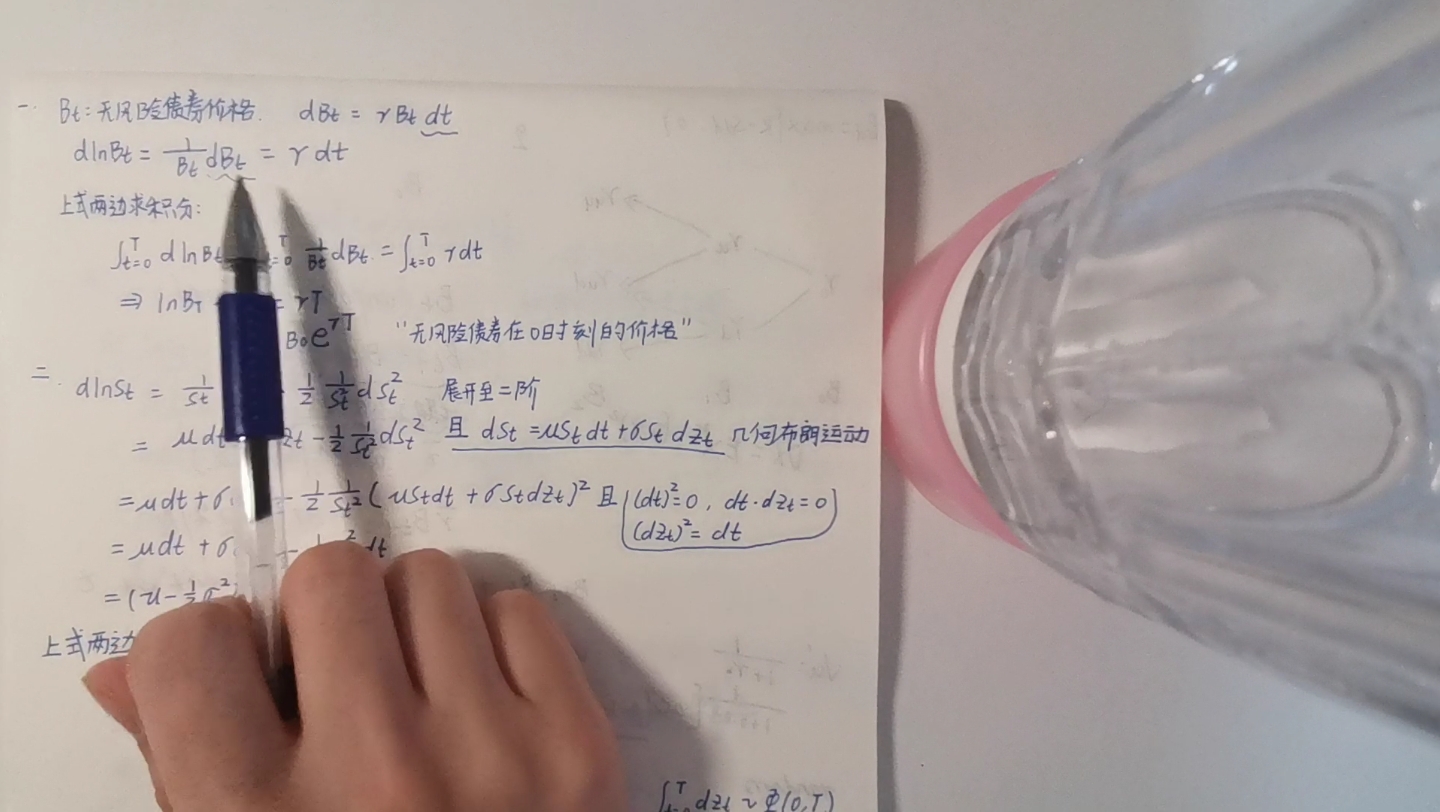 一. Bt: 无风险债券价格. dBt = rBt dt
dlnBt = 1/Bt dBt = r dt
上式两边求积分:
∫_{t=0}^{T} dlnBt ∫_{t=0}^{T} 1/Bt dBt = ∫_{t=0}^{T} r dt
⇒ lnBT = rT
B0e^{rT} "无风险债券在0时刻的价格"
二. dlnSt = 1/St 1/2 1/St² dSt² 展开至二阶
= μdt zt - 1/2 1/St² dSt² 且 dSt = μSt dt + σSt dzt 几何布朗运动
= μdt + σ - 1/2 1/St² (μStdt + σStdzt)² 且 (dt)²=0, dt·dzt=0
(dzt)² = dt
= μdt + σ - 1/2 ² dt
= (μ - 1/2 σ²)
上式两边
∫_{t=0}^{T} dzt ~ Φ(0,T)